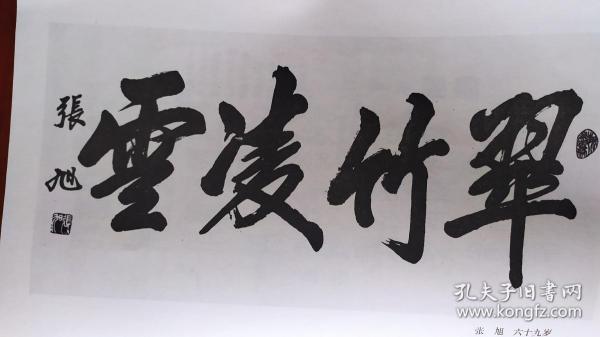 翠竹凌雲
張旭
张 旭 六十九岁
孔夫子旧书网
www.kongfz.com